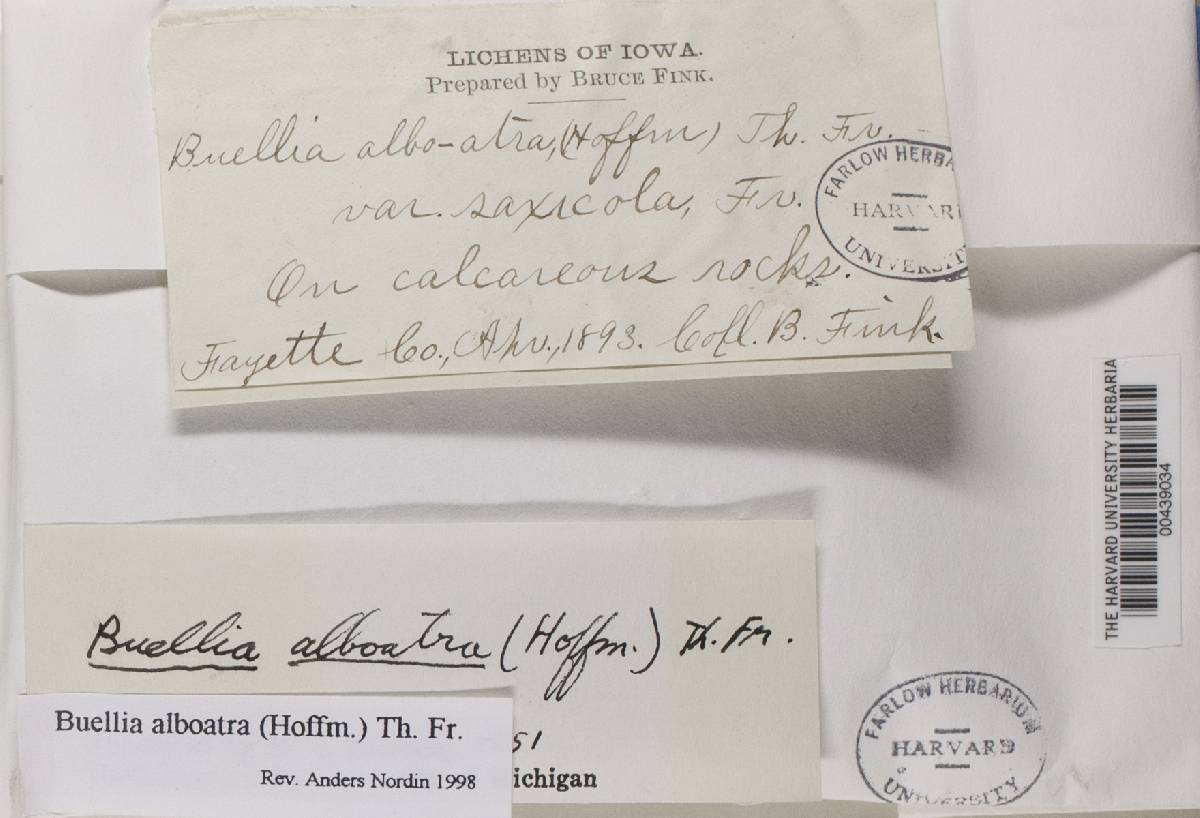 LICHENS OF IOWA.
Prepared by BRUCE FINK.
Buellia albo-atra, (Hoffm) Th. Fr.
var. saxicola, Fr.
On calcareous rocks.
Fayette Co., 1893. Coll. B. Fink.
FARLOW HERBA
HARVARD
UNIVERSITY
THE HARVARD UNIVERSITY HERBARIA
00439034
Buellia alboatra (Hoffm.) Th. Fr.
51
ichigan
Buellia alboatra (Hoffm.) Th. Fr.
Rev. Anders Nordin 1998
FARLOW HERBARIUM
HARVARD
UNIVERSITY